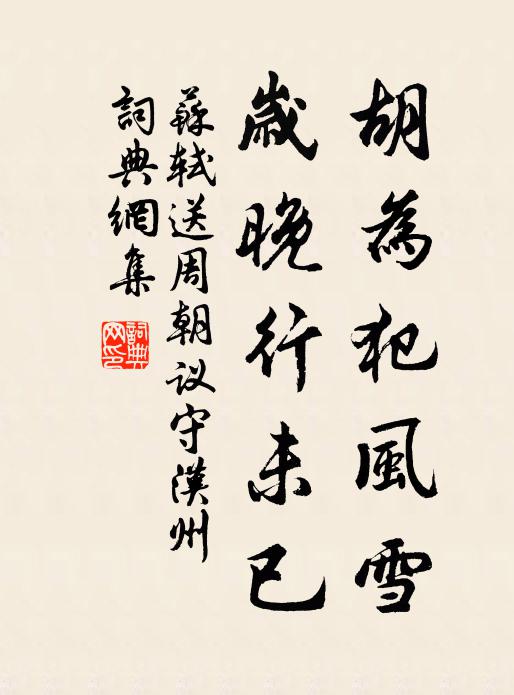 胡為犯風雪
歲晚行未已
蘇軾送周朝议守漢州
詞典網集
詞典網印